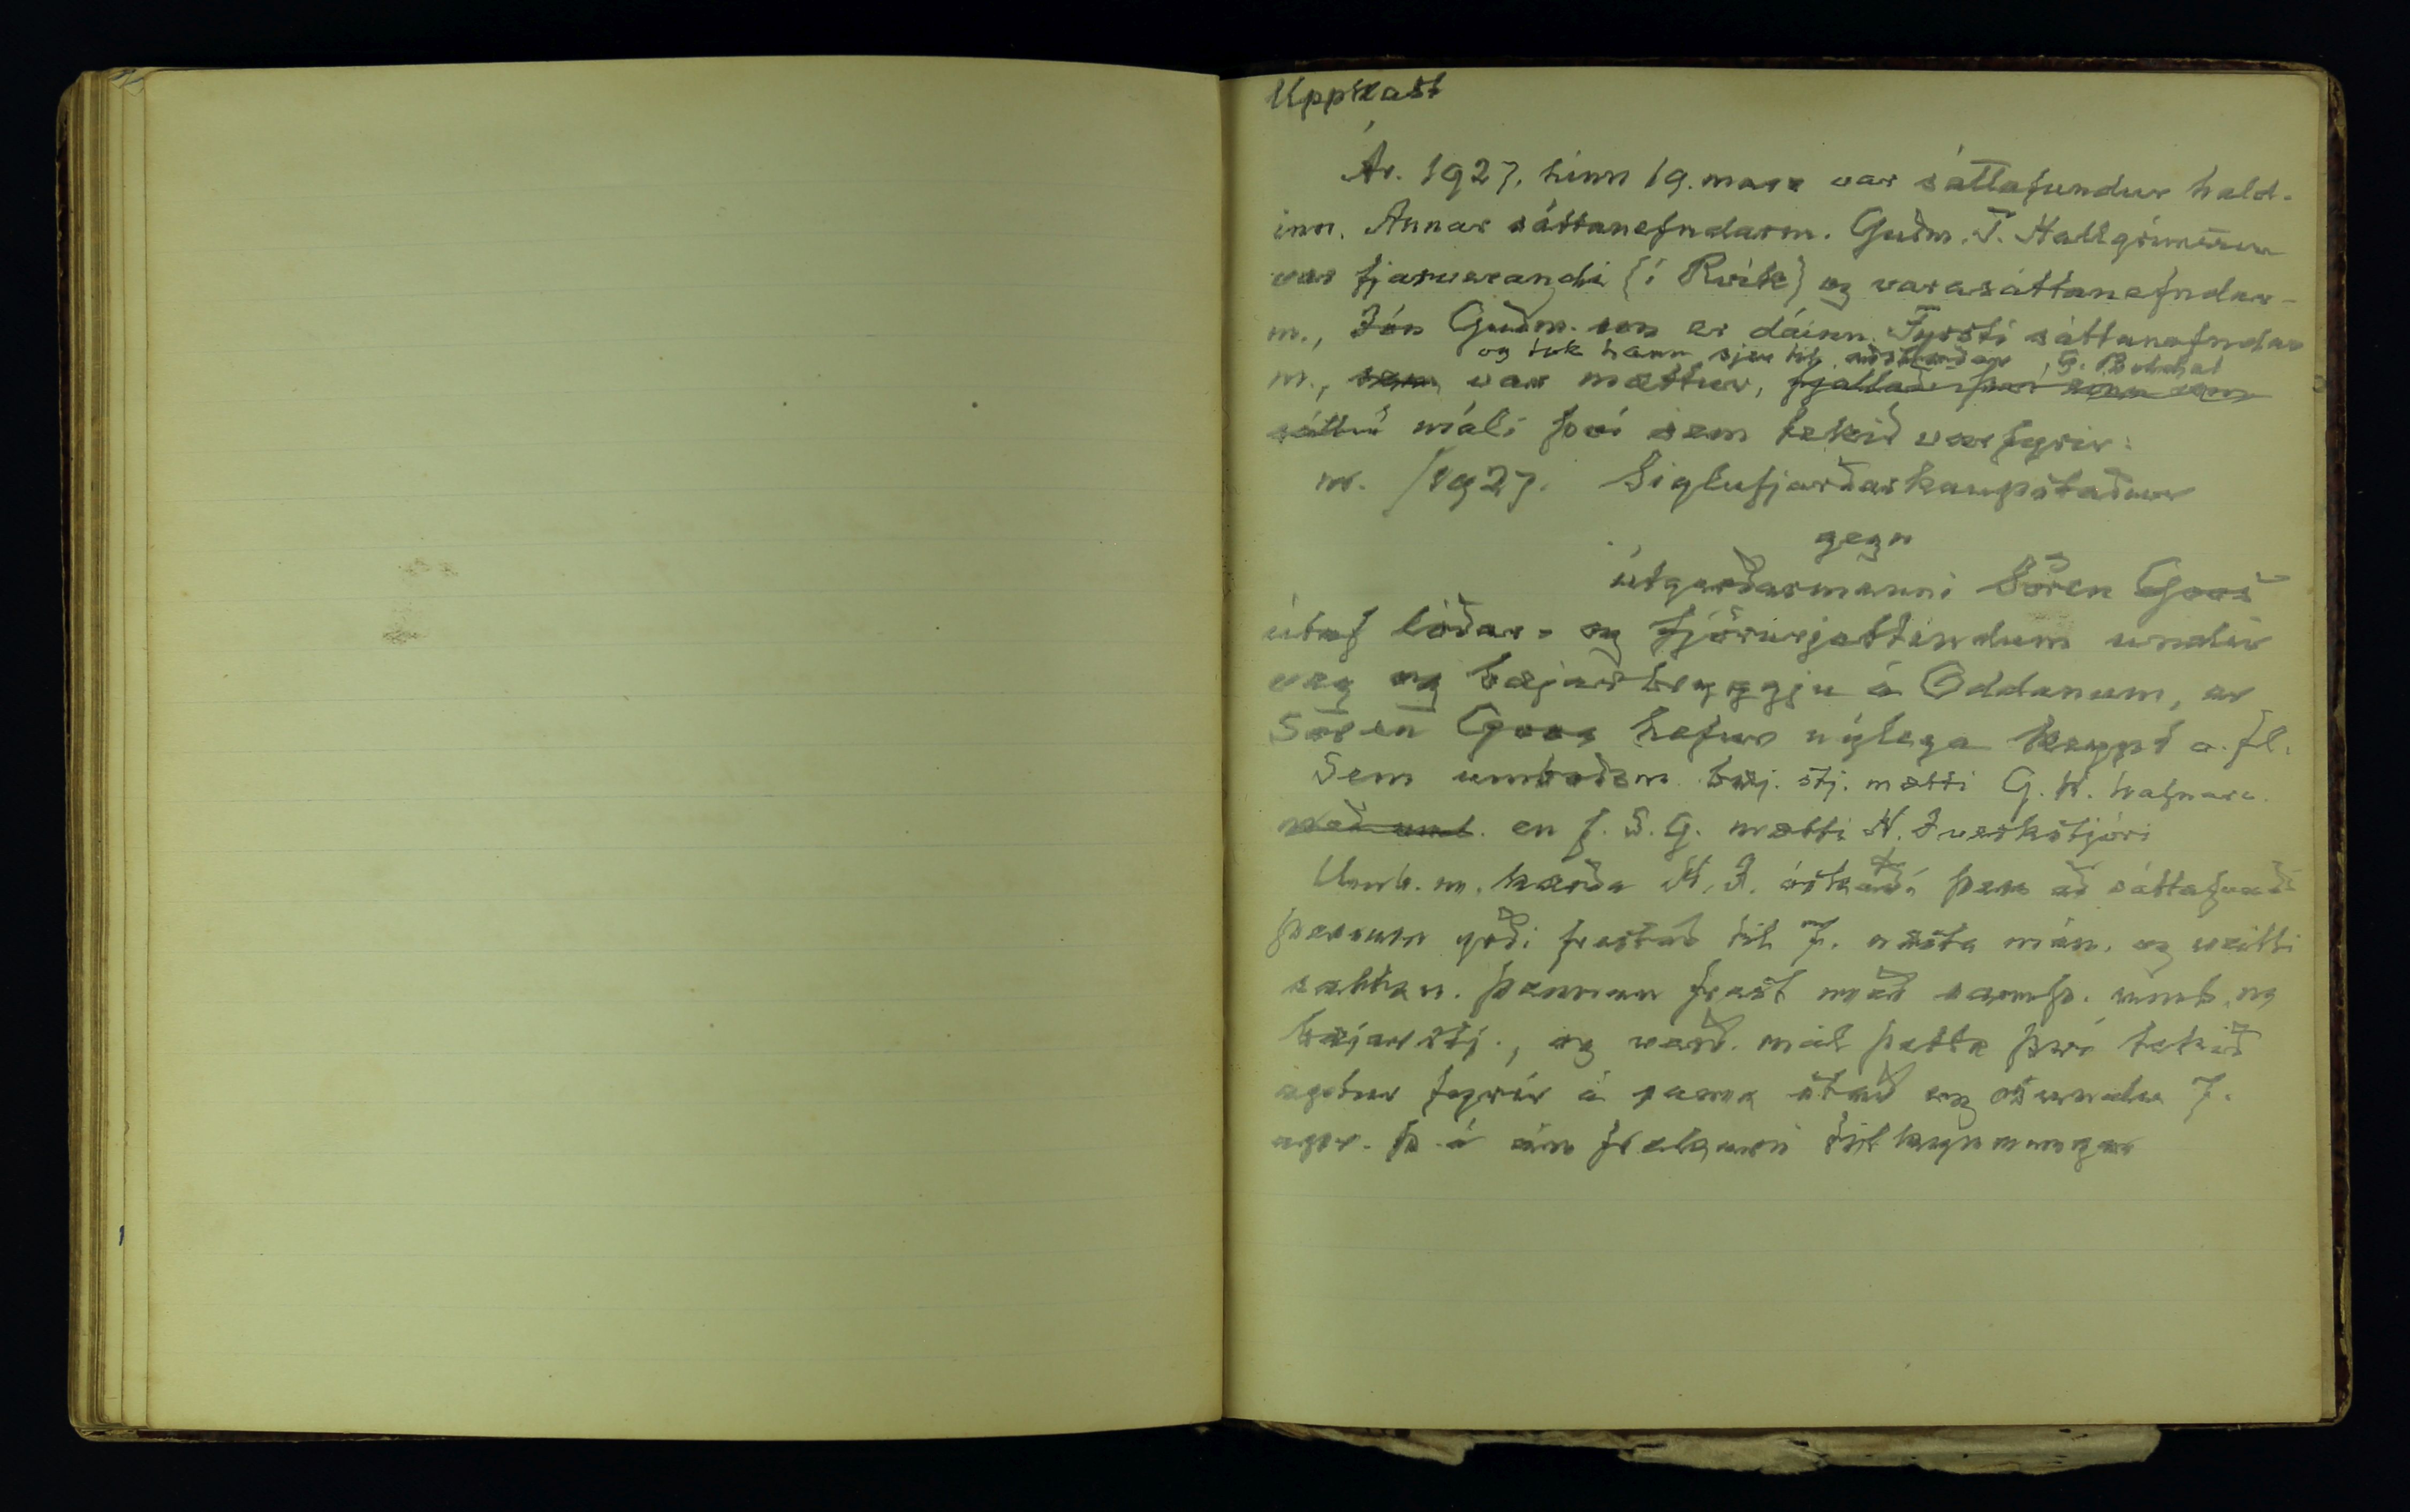 Uppkast
Ár. 1927, hinn 19. mars var sáttafundur hald-
inn. Annar sáttanefndarm. Guðm. T. Hallgrímsson
var fjarverandi (í Rvík) og varasáttanefndar-
m., Jón Guðm.son er dáinn. Fyrsti sáttanefndar
og tók hann sjer til aðstoðar G. B
m., sem var mættur, fjallaði því einn um
sáttir máli því sem tekið var fyrir:
nr. /1927. Siglufjarðarkaupstaður
gegn
útgerðarmanni Sören Goos
útaf lóðar- og fjörurjettindum undir
veg og bæjarbryggju á Oddanum, er
Sören Goos hefur nýlega keypt o. fl.
Sem umboðsm. bæj. stj. mætti G. H. hafnarv.
með umb. en f. S. G. mætti H. J verkstjóri
Umb. m. kærða H. J. óskaði þess að sáttafundi
þessum yrði frestað til 7. næsta mán. og veitti
sáttan. þennan frest með samþ. umb. m
bæjarstj., og verð. mál þetta því tekið
aptur fyrir á sama stað og stundu 7.
apr. þ. á án frekari tilkynningar